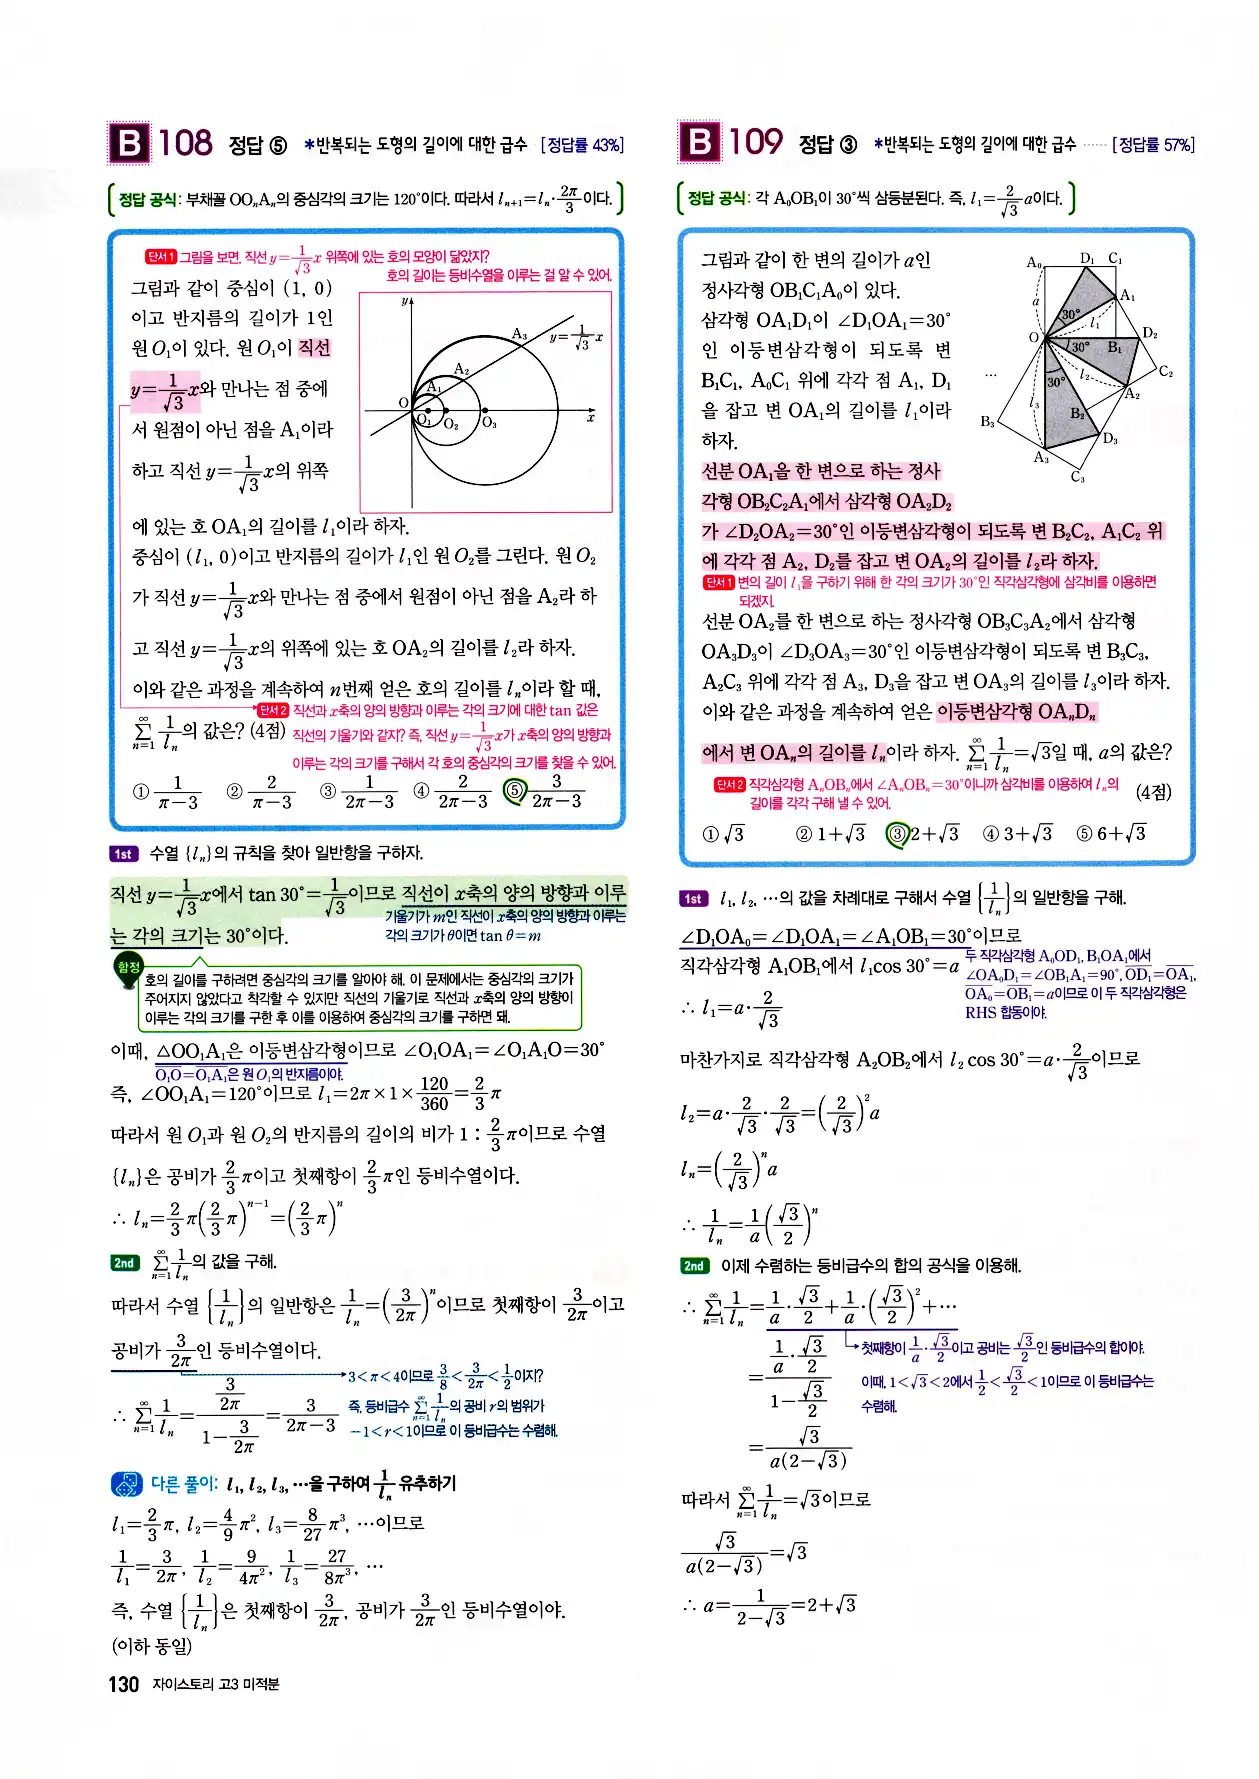 B 108 정답 ⑤ *반복되는 도형의 길이에 대한 급수 [정답률 43%]
정답 공식: 부채꼴 OOₙAₙ의 중심각의 크기는 120°이다. 따라서 lₙ₊₁=lₙ·2π/3이다.
단서1 그림을 보면, 직선 y=1/√3 x 위쪽에 있는 호의 모양이 닮았지?
호의 길이는 등비수열을 이루는 걸 알 수 있어.
그림과 같이 중심이 (1, 0)
이고 반지름의 길이가 1인
원 O₁이 있다. 원 O₁이 직선
y=1/√3 x와 만나는 점 중에
서 원점이 아닌 점을 A₁이라
하고 직선 y=1/√3 x의 위쪽
y
A₃
y=1/√3 x
A₂
A₁
O
O₁ O₂ O₃
x
에 있는 호 OA₁의 길이를 l₁이라 하자.
중심이 (l₁, 0)이고 반지름의 길이가 l₁인 원 O₂를 그린다. 원 O₂
가 직선 y=1/√3 x와 만나는 점 중에서 원점이 아닌 점을 A₂라 하
고 직선 y=1/√3 x의 위쪽에 있는 호 OA₂의 길이를 l₂라 하자.
이와 같은 과정을 계속하여 n번째 얻은 호의 길이를 lₙ이라 할 때,
∑(n=1→∞) 1/lₙ의 값은? (4점)
단서2 직선과 x축의 양의 방향과 이루는 각의 크기에 대한 tan 값은
직선의 기울기와 같지? 즉, 직선 y=1/√3 x가 x축의 양의 방향과
이루는 각의 크기를 구해서 각 호의 중심각의 크기를 찾을 수 있어.
① 1/(π−3) ② 2/(π−3) ③ 1/(2π−3) ④ 2/(2π−3) ⑤ 3/(2π−3)
1st 수열 {lₙ}의 규칙을 찾아 일반항을 구하자.
직선 y=1/√3 x에서 tan 30°=1/√3이므로 직선이 x축의 양의 방향과 이루
는 각의 크기는 30°이다.
기울기가 m인 직선이 x축의 양의 방향과 이루는
각의 크기가 θ이면 tan θ=m
함정 호의 길이를 구하려면 중심각의 크기를 알아야 해. 이 문제에서는 중심각의 크기가
주어지지 않았다고 착각할 수 있지만 직선의 기울기로 직선과 x축의 양의 방향이
이루는 각의 크기를 구한 후 이를 이용하여 중심각의 크기를 구하면 돼.
이때, △OO₁A₁은 이등변삼각형이므로 ∠O₁OA₁=∠O₁A₁O=30°
O₁O=O₁A₁은 원 O₁의 반지름이야.
즉, ∠OO₁A₁=120°이므로 l₁=2π×1×120/360=2/3 π
따라서 원 O₁과 원 O₂의 반지름의 길이의 비가 1 : 2/3 π이므로 수열
{lₙ}은 공비가 2/3 π이고 첫째항이 2/3 π인 등비수열이다.
∴ lₙ=2/3 π(2/3 π)ⁿ⁻¹=(2/3 π)ⁿ
2nd ∑(n=1→∞) 1/lₙ의 값을 구해.
따라서 수열 {1/lₙ}의 일반항은 1/lₙ=(3/2π)ⁿ이므로 첫째항이 3/2π이고
공비가 3/2π인 등비수열이다.
3<π<4이므로 3/8<3/2π<1/2이지?
즉, 등비급수 ∑(n=1→∞) 1/lₙ의 공비 r의 범위가
−1<r<1이므로 이 등비급수는 수렴해.
∴ ∑(n=1→∞) 1/lₙ=(3/2π)/(1−3/2π)=3/(2π−3)
다른 풀이: l₁, l₂, l₃, ⋯을 구하여 1/lₙ 유추하기
l₁=2/3 π, l₂=4/9 π², l₃=8/27 π³, ⋯이므로
1/l₁=3/2π, 1/l₂=9/4π², 1/l₃=27/8π³, ⋯
즉, 수열 {1/lₙ}은 첫째항이 3/2π, 공비가 3/2π인 등비수열이야.
(이하 동일)
130 자이스토리 고3 미적분
B 109 정답 ③ *반복되는 도형의 길이에 대한 급수 ⋯⋯ [정답률 57%]
정답 공식: 각 A₀OB₁이 30°씩 삼등분된다. 즉, l₁=2/√3 a이다.
그림과 같이 한 변의 길이가 a인
정사각형 OB₁C₁A₀이 있다.
삼각형 OA₁D₁이 ∠D₁OA₁=30°
인 이등변삼각형이 되도록 변
B₁C₁, A₀C₁ 위에 각각 점 A₁, D₁
을 잡고 변 OA₁의 길이를 l₁이라
하자.
A₀ D₁ C₁
a
A₁
30° l₁
O
D₂
30° B₁
C₂
⋯
30° l₂
l₃
A₂
B₂
B₃
D₃
A₃
C₃
선분 OA₁을 한 변으로 하는 정사
각형 OB₂C₂A₁에서 삼각형 OA₂D₂
가 ∠D₂OA₂=30°인 이등변삼각형이 되도록 변 B₂C₂, A₁C₂ 위
에 각각 점 A₂, D₂를 잡고 변 OA₂의 길이를 l₂라 하자.
단서1 변의 길이 l₁을 구하기 위해 한 각의 크기가 30°인 직각삼각형에 삼각비를 이용하면
되겠지.
선분 OA₂를 한 변으로 하는 정사각형 OB₃C₃A₂에서 삼각형
OA₃D₃이 ∠D₃OA₃=30°인 이등변삼각형이 되도록 변 B₃C₃,
A₂C₃ 위에 각각 점 A₃, D₃을 잡고 변 OA₃의 길이를 l₃이라 하자.
이와 같은 과정을 계속하여 얻은 이등변삼각형 OAₙDₙ
에서 변 OAₙ의 길이를 lₙ이라 하자. ∑(n=1→∞) 1/lₙ=√3일 때, a의 값은?
단서2 직각삼각형 AₙOBₙ에서 ∠AₙOBₙ=30°이니까 삼각비를 이용하여 lₙ의
길이를 각각 구해 낼 수 있어.
(4점)
① √3 ② 1+√3 ③ 2+√3 ④ 3+√3 ⑤ 6+√3
1st l₁, l₂, ⋯의 값을 차례대로 구해서 수열 {1/lₙ}의 일반항을 구해.
∠D₁OA₀=∠D₁OA₁=∠A₁OB₁=30°이므로
직각삼각형 A₁OB₁에서 l₁cos 30°=a
두 직각삼각형 A₀OD₁, B₁OA₁에서
∠OA₀D₁=∠OB₁A₁=90°, OD₁=OA₁,
OA₀=OB₁=a이므로 이 두 직각삼각형은
RHS 합동이야.
∴ l₁=a·2/√3
마찬가지로 직각삼각형 A₂OB₂에서 l₂ cos 30°=a·2/√3이므로
l₂=a·2/√3·2/√3=(2/√3)²a
lₙ=(2/√3)ⁿa
∴ 1/lₙ=1/a(√3/2)ⁿ
2nd 이제 수렴하는 등비급수의 합의 공식을 이용해.
∴ ∑(n=1→∞) 1/lₙ=1/a·√3/2+1/a·(√3/2)²+⋯
첫째항이 1/a·√3/2이고 공비는 √3/2인 등비급수의 합이야.
이때, 1<√3<2에서 1/2<√3/2<1이므로 이 등비급수는
수렴해.
=(1/a·√3/2)/(1−√3/2)
=√3/(a(2−√3))
따라서 ∑(n=1→∞) 1/lₙ=√3이므로
√3/(a(2−√3))=√3
∴ a=1/(2−√3)=2+√3